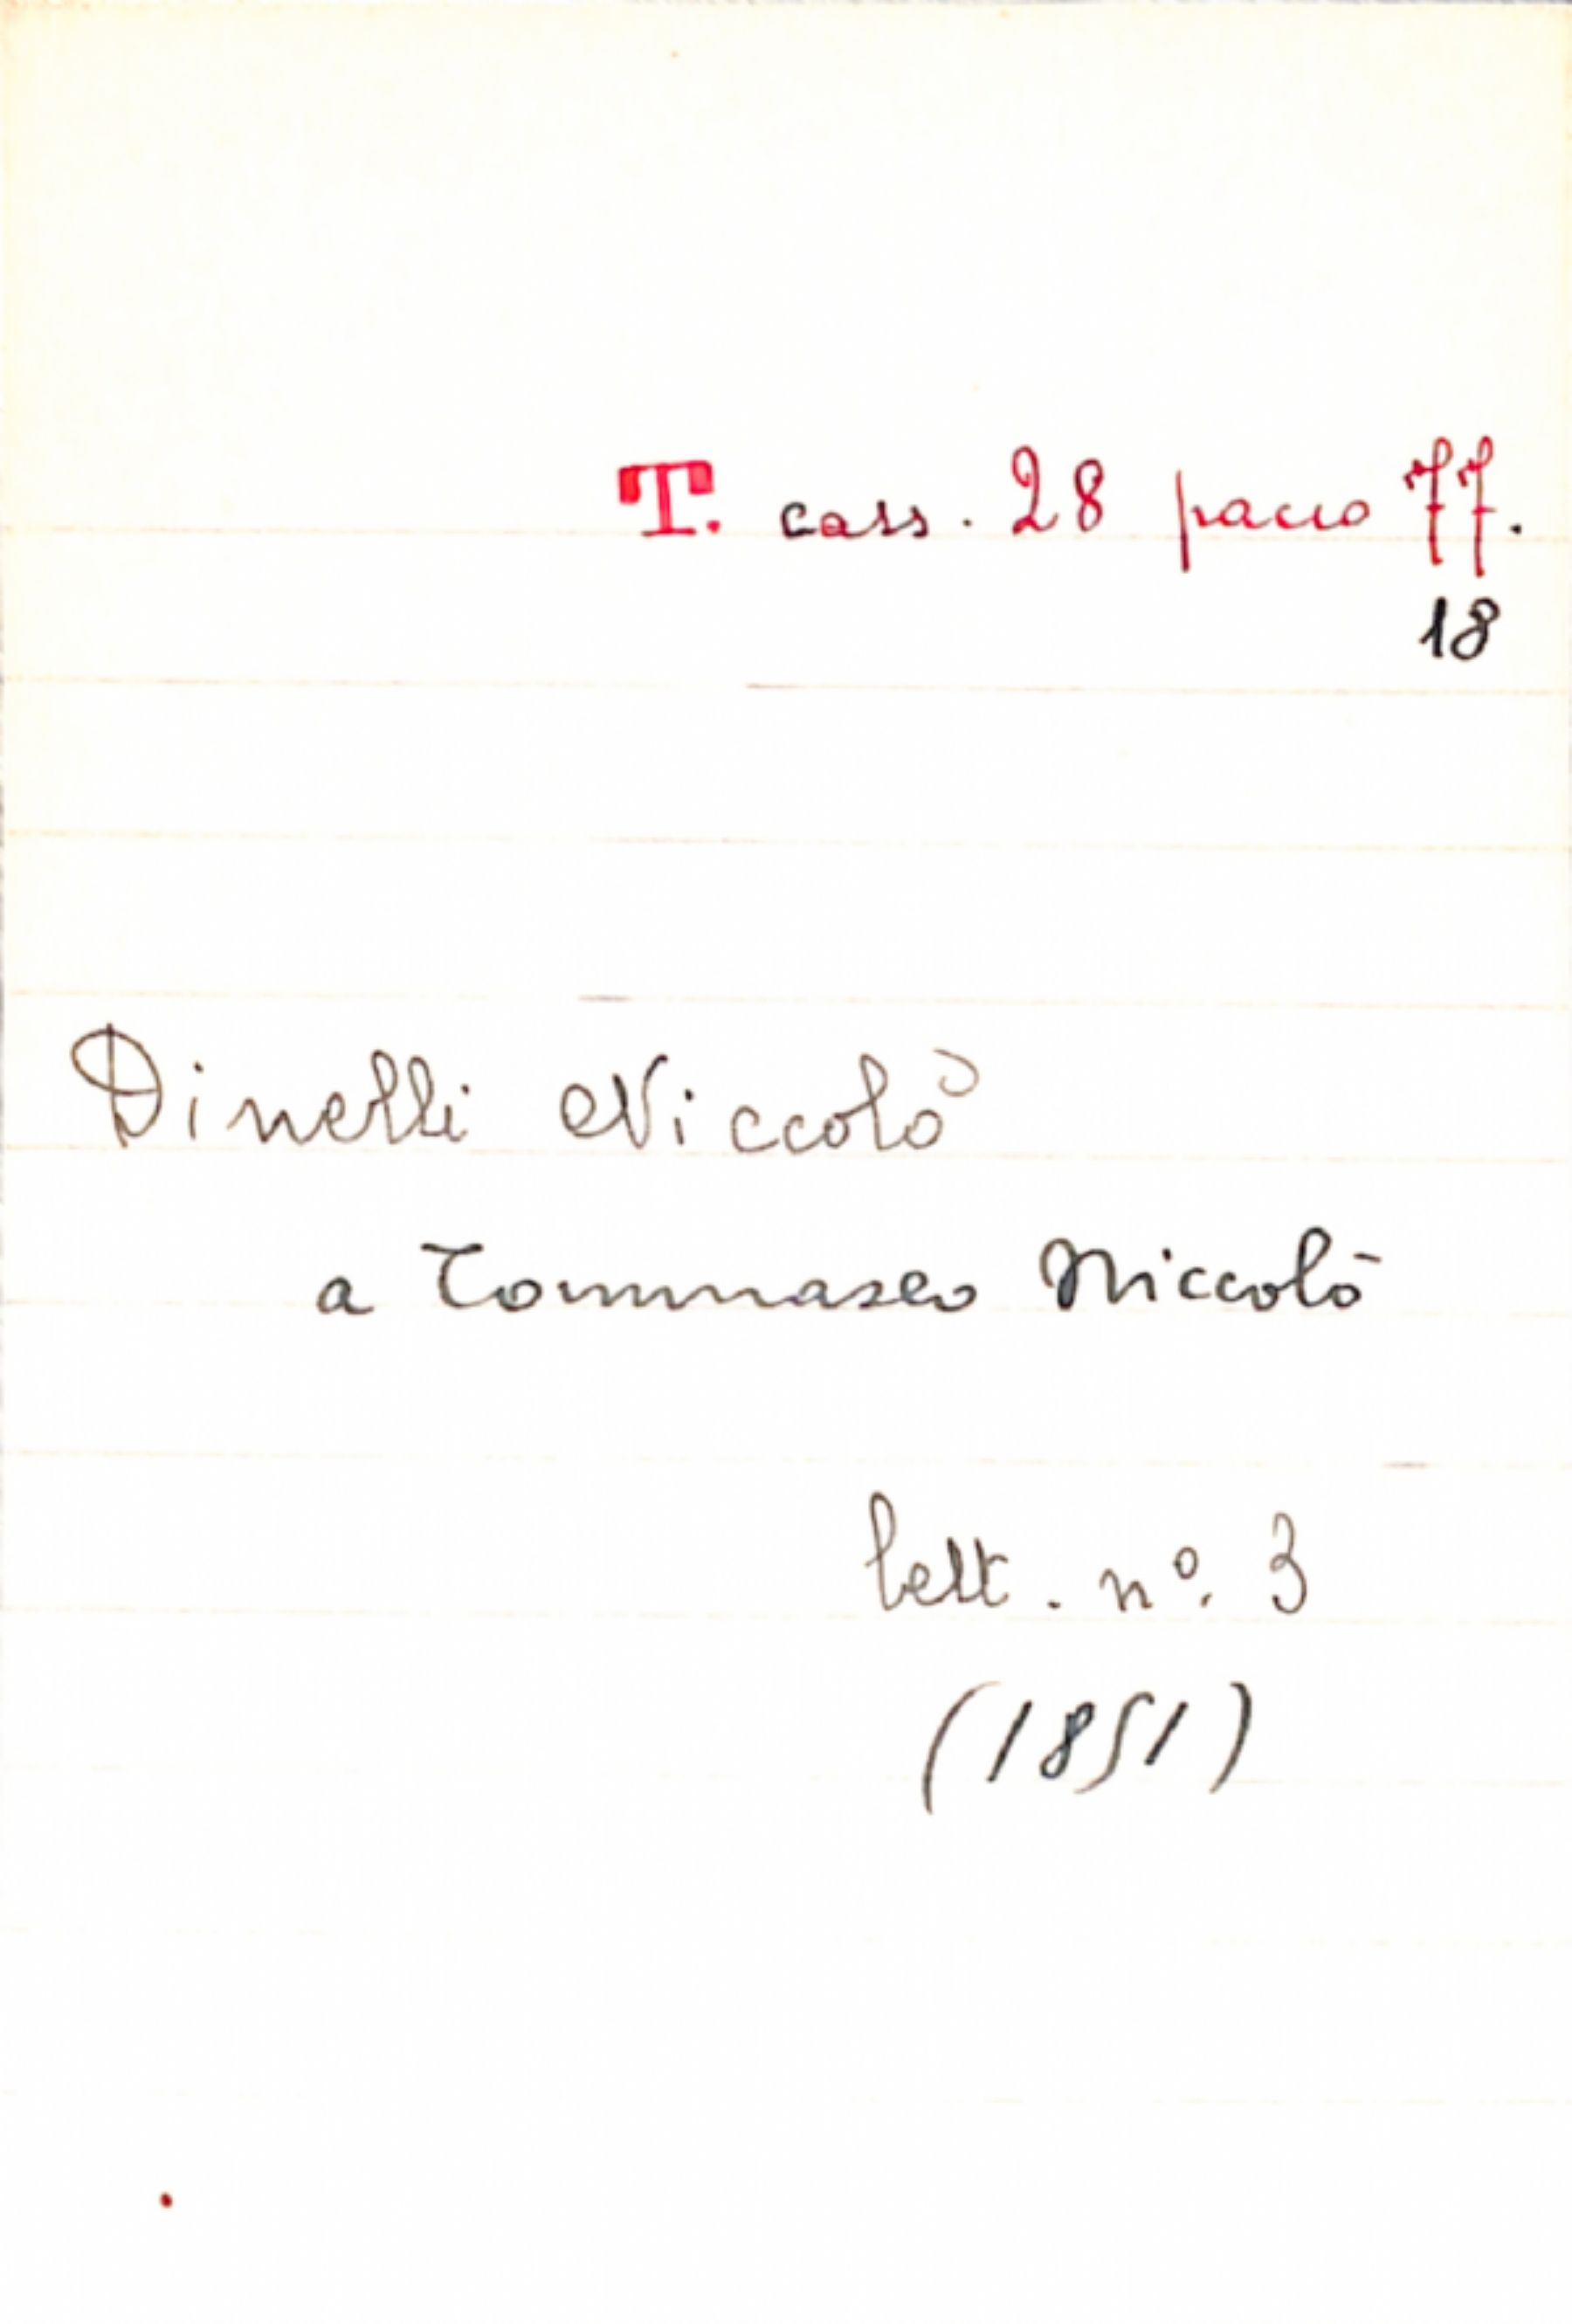 T. cass. 28 pacco 77.
18
Dinelli Niccolò
a Tommaseo Niccolò
lett. nº. 3
(1851)